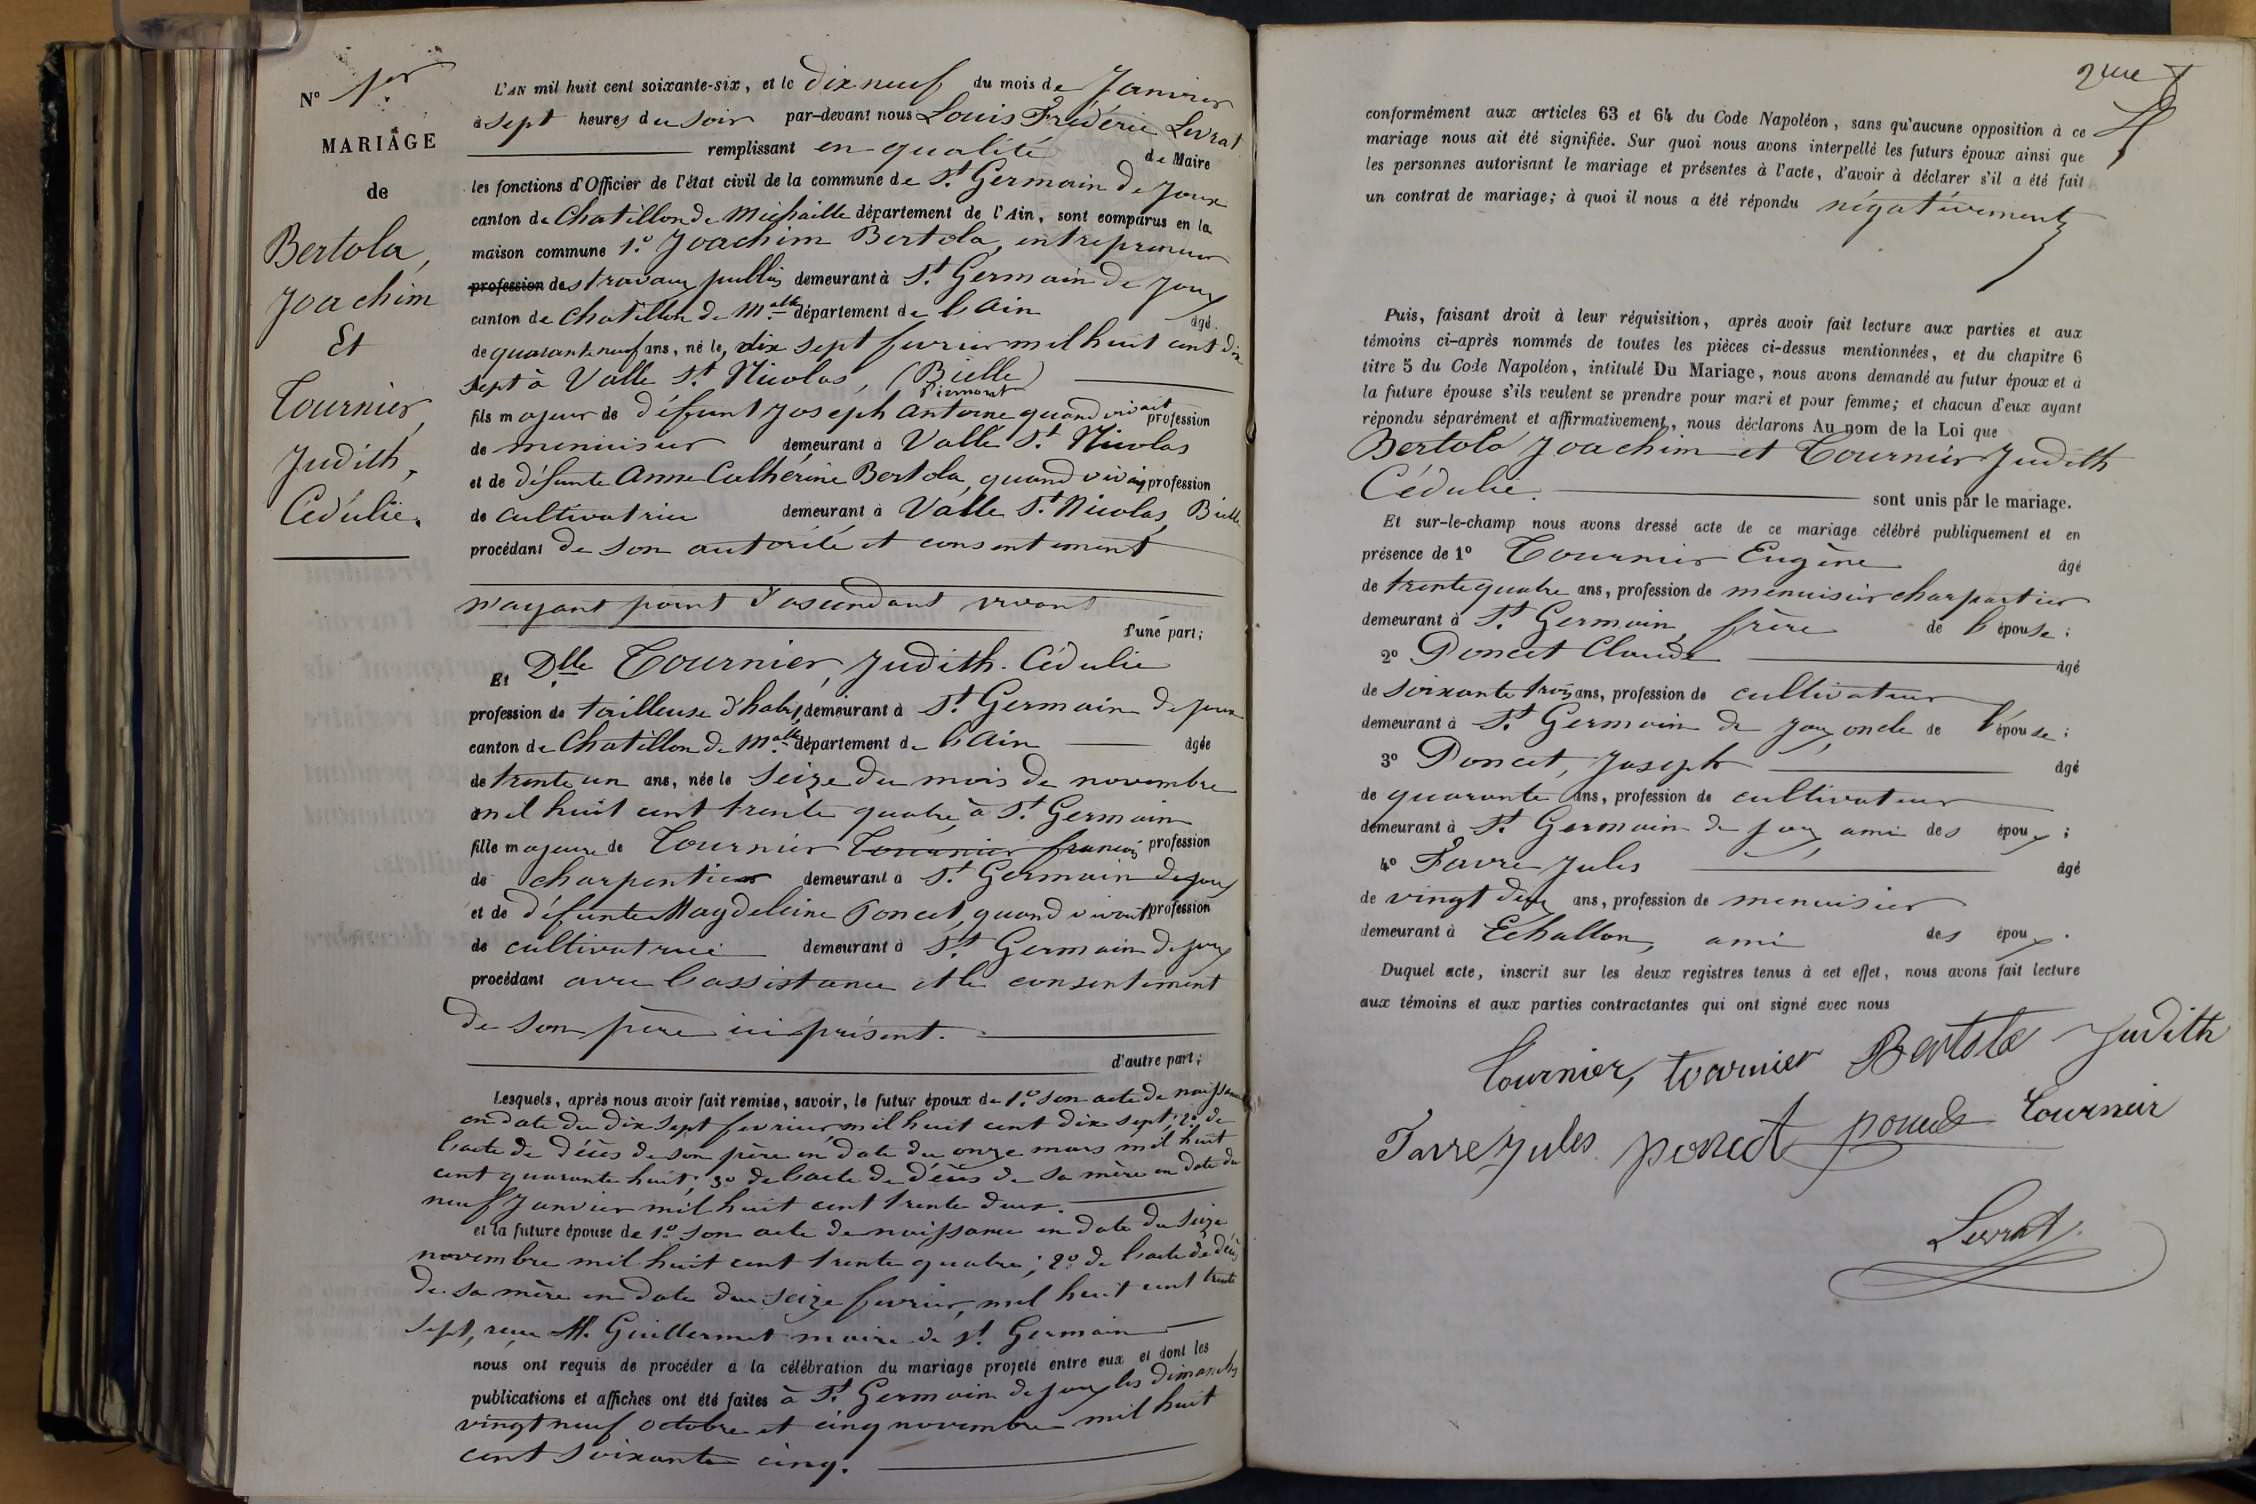 N° 1er
MARIAGE
de
Bertola,
Joachim
Et
Tournier,
Judith,
Cédulie.
L'AN mil huit cent soixante-six, et le dix neuf du mois de Janvier
à sept heures du soir par-devant nous Louis Frédéric Levrat
remplissant en qualité de Maire
les fonctions d'Officier de l'état civil de la commune de St Germain de Joux
canton de Chatillon de Michaille département de l'Ain, sont comparus en la
maison commune 1.° Joachim Bertola, entrepreneur
profession des travaux publics demeurant à St Germain de Joux
canton de Chatillon de M.alle département de l'Ain âgé
de quarante neuf ans, né le, dix sept fevrier mil huit cent dix
sept à Valle St Nicolas, (Bielle)
Piemont
fils majeur de défunt Joseph Antoine quand vivait profession
de menuisier demeurant à Vallé St Nicolas
et de défunte Anne Cathérine Bertola, quand vivait profession
de cultivatrice demeurant à Valle St Nicolas, Bielle
procédant de son autorité et consentement
n'ayant point d'ascendant vivant
d'une part;
Et Dlle Tournier, Judith. Cédulie
profession de tailleuse d'habits, demeurant à St Germain de Joux
canton de Chatillon de M.alle département de l'Ain âgée
de trente un ans, née le seize du mois de novembre
mil huit cent trente quatre, à St Germain
fille majeure de Tournier Tournier françois profession
de charpentier demeurant à St Germain de Joux
et de défunte Magdeleine Poncet, quand vivait profession
de cultivatrice demeurant à St Germain de Joux
procédant avec l'assistance et le consentement
de son père ici présent.
d'autre part;
Lesquels, après nous avoir fait remise, savoir, le futur époux de 1.° son acte de naissance
en date du dix sept fevrier mil huit cent dix sept; 2.° de
l'acte de décès de son père en date du onze mars mil huit
cent quarante huit; 3° de l'acte de décès de sa mère en date du
neuf Janvier mil huit cent trente deux.
et la future épouse de 1.° son acte de naissance en date du seize
novembre mil huit cent trente quatre; 2.° de l'acte de décès
de sa mère en date du seize fevrier, mil huit cent trente
sept, reçu M. Guillermet maire de St Germain
nous ont requis de procéder à la célébration du mariage projeté entre eux et dont les
publications et affiches ont été faites à St Germain de Joux les dimanches
vingt neuf octobre et cinq novembre mil huit
cent soixante cinq.
2me
conformément aux articles 63 et 64 du Code Napoléon, sans qu'aucune opposition à ce
mariage nous ait été signifiée. Sur quoi nous avons interpellé les futurs époux ainsi que
les personnes autorisant le mariage et présentes à l'acte, d'avoir à déclarer s'il a été fait
un contrat de mariage; à quoi il nous a été répondu négativement
Puis, faisant droit à leur réquisition, après avoir fait lecture aux parties et aux
témoins ci-après nommés de toutes les pièces ci-dessus mentionnées, et du chapitre 6
titre 5 du Code Napoléon, intitulé Du Mariage, nous avons demandé au futur époux et à
la future épouse s'ils veulent se prendre pour mari et pour femme; et chacun d'eux ayant
répondu séparément et affirmativement, nous déclarons Au nom de la Loi que
Bertola Joachim et Tournier Judith
Cédulie. sont unis par le mariage.
Et sur-le-champ nous avons dressé acte de ce mariage célébré publiquement et en
présence de 1° Tournier Eugène âgé
de trente quatre ans, profession de menuisier charpentier
demeurant à St Germain, frère de l'épouse;
2° Poncet Claude âgé
de soixante trois ans, profession de cultivateur
demeurant à St Germain de Joux, oncle de l'épouse;
3° Poncet, Joseph âgé
de quarante ans, profession de cultivateur
demeurant à St Germain de Joux, ami des époux;
4° Favre Jules âgé
de vingt deux ans, profession de menuisier
demeurant à Échallon, ami des époux.
Duquel acte, inscrit sur les deux registres tenus à cet effet, nous avons fait lecture
aux témoins et aux parties contractantes qui ont signé avec nous
Tournier, tournier Bertola Judith
Favre Jules poncet poncet Tournier
Levrat.